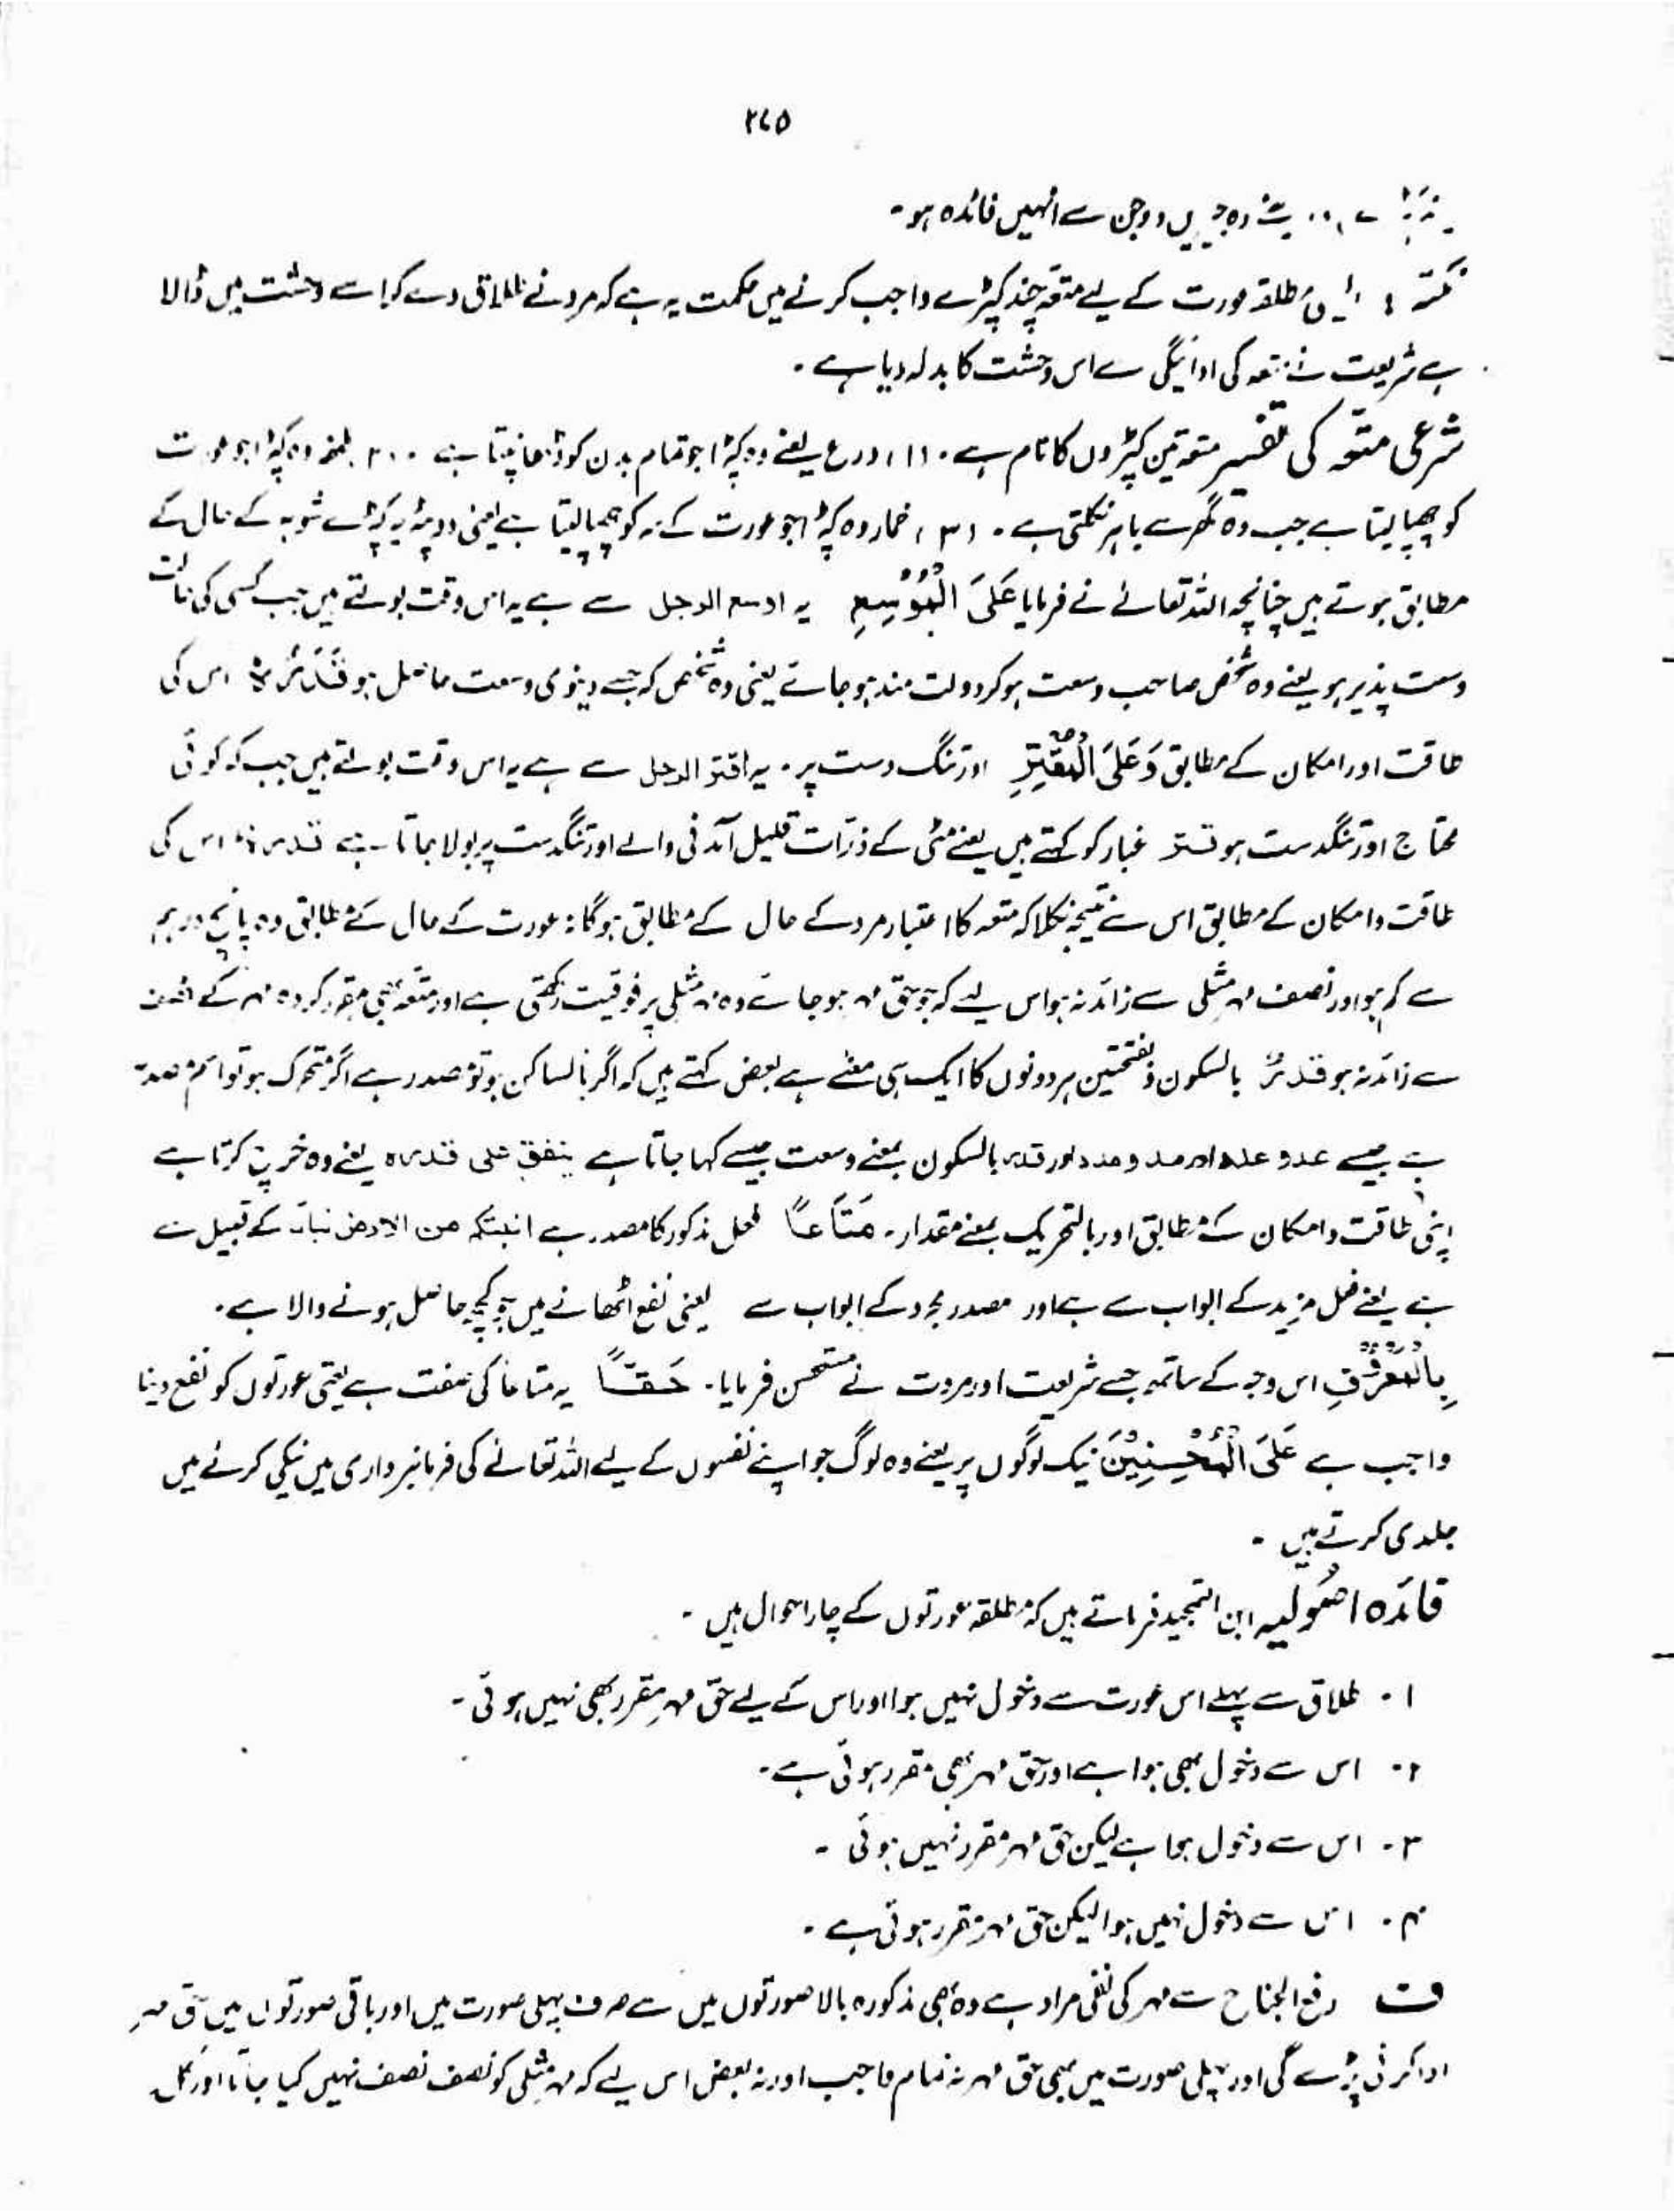 ۲۷۵
وہ چیزیں دو جن سے انہیں فائدہ ہو۔
نکتہ : ایسی مطلقہ عورت کے لیے متعہ چند کپڑے واجب کرنے میں حکمت یہ ہے کہ مرد نے طلاق دے کر اسے وحشت میں ڈالا
ہے شریعت نے متعہ کی ادائیگی سے اس وحشت کا بدلہ دیا ہے۔
شرعی متعہ کی تفسیر متعہ تین کپڑوں کا نام ہے۔ (۱) درع یعنے وہ کپڑا جو تمام بدن کو ڈھانپتا ہے ۔ (۲) ملحفہ وہ کپڑا جو عورت
کو چھپا لیتا ہے جب وہ گھر سے باہر نکلتی ہے۔ (۳) خمار وہ کپڑا جو عورت کے سر کو چھپا لیتا ہے یعنی دوپٹہ یہ کپڑے شوہر کے حال کے
مطابق ہوتے ہیں چنانچہ اللہ تعالےٰ نے فرمایا عَلَی الْمُوْسِعِ یہ اوسع الرجل سے ہے یہ اس وقت بولتے ہیں جب کسی کی حالت
وسعت پذیر ہو یعنے وہ شخص صاحب وسعت ہو کر دولت مند ہو جائے یعنی وہ شخص کہ جسے دینوی وسعت حاصل ہو قَدَرُہٗ اس کی
طاقت اور امکان کے مطابق وَعَلَی الْمُقْتِرِ اور تنگ دست پر۔ یہ اقتر الرجل سے ہے یہ اس وقت بولتے ہیں جب کہ کوئی
محتاج اور تنگدست ہو قتر غبار کو کہتے ہیں یعنے مٹی کے ذرّات قلیل آمدنی والے اور تنگدست پر بولا جاتا ہے قدرہٗ اس کی
طاقت و امکان کے مطابق اس سے نتیجہ نکلا کہ متعہ کا اعتبار مرد کے حال کے مطابق ہوگا نہ عورت کے حال کے مطابق وہ پانچ درہم
سے کم ہو اور نصف مہر مثلی سے زائد نہ ہو اس لیے کہ جو حق مہر ہو جائے وہ مہر مثلی پر فوقیت رکھتی ہے اور متعہ بھی مقرر کردہ مہر کے نصف
سے زائد نہ ہو قدرٌ بالسکون و بفتحتین ہر دونوں کا ایک ہی معنے ہے بعض کہتے ہیں کہ اگر بالساکن ہو تو مصدر ہے اگر متحرک ہو تو اسم مصدر
ہے جیسے عد و عدد اور مد و مدد اور قدر بالسکون بمعنے وسعت جیسے کہا جاتا ہے ینفق علی قدرہ یعنے وہ خرچ کرتا ہے
اپنی طاقت و امکان کے مطابق اور بالتحریک بمعنے مقدار۔ مَتَاعًا فعل مذکور کا مصدر ہے انبتکم من الارض نباتا کے قبیل سے
ہے یعنے فعل مزید کے ابواب سے ہے اور مصدر مجرد کے ابواب سے یعنی نفع اٹھانے میں جو کچھ حاصل ہونے والا ہے۔
بِالْمَعْرُوْفِ اس وجہ کے ساتھ جسے شریعت اور مروت نے مستحسن فرمایا۔ حَقًّا یہ متاعاً کی صفت ہے یعنی عورتوں کو نفع دینا
واجب ہے عَلَی الْمُحْسِنِیْنَ نیک لوگوں پر یعنے وہ لوگ جو اپنے نفسوں کے لیے اللہ تعالےٰ کی فرمانبرداری میں نیکی کرنے میں
جلدی کرتے ہیں ۔
فائدہ اصولیہ ابن التمجید فرماتے ہیں کہ مطلقہ عورتوں کے چار احوال ہیں ۔
۱۔ طلاق سے پہلے اس عورت سے دخول نہیں ہوا اور اس کے لیے حق مہر مقرر بھی نہیں ہوئی ۔
۲۔ اس سے دخول بھی ہوا ہے اور حق مہر بھی مقرر ہوئی ہے۔
۳۔ اس سے دخول ہوا ہے لیکن حق مہر مقرر نہیں ہوئی ۔
۴۔ اس سے دخول نہیں ہوا لیکن حق مہر مقرر ہوئی ہے ۔
ف رفع الجناح سے مہر کی نفی مراد ہے وہ بھی مذکورہ بالا صورتوں میں سے صرف پہلی صورت میں اور باقی صورتوں میں حق مہر
ادا کرنی پڑے گی اور پہلی صورت میں بھی حق مہر نہ تمام واجب اور نہ بعض اس لیے کہ مہر مثلی کو نصف نصف نہیں کیا جاتا اور کل